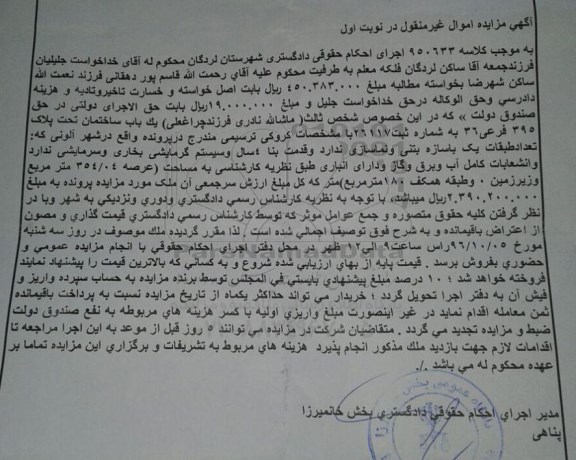 آگهي مزايده اموال غيرمنقول در نوبت اول
به موجب كلاسه ۹۵۰۶۳۳ اجرای احكام حقوقی دادگستری شهرستان لردگان محكوم له آقای خداخواست جليليان
فرزندجمعه آقا ساكن لردگان فلكه معلم به طرفيت محكوم عليه آقاي رحمت الله قاسم پور دهقانی فرزند نعمت الله
ساكن شهرضا بخواسته مطالبه مبلغ ۴۵۰.۳۸۳.۰۰۰ ريال بابت اصل خواسته و خسارت تاخيروتاديه و هزينه
دادرسي وحق الوكاله درحق خداخواست جليل و مبلغ ۱۹.۰۰۰.۰۰۰ريال بابت حق الاجرای دولتی در حق
صندوق دولت » كه در اين خصوص شخص ثالث( ماشاالله نادری فرزندچراغعلی) يك باب ساختمان تحت پلاک
۳۹۵ فرعی۳۶ به شماره ثبت۲۶۱۱۷با مشخصات كروكی ترسيمی مندرج درپرونده واقع درشهر آلونی كه:
تعدادطبقات يک باسازه بتنی ونماسازی ندارد وقدمت بنا ۴سال وسيستم گرمايشی بخاری وسرمايشی ندارد
وانشعابات كامل آب وبرق وگاز ودارای انباری طبق نظريه كارشناسی به مساحت (عرصه ۳۵۴/۰۴ متر مربع
وزيرزمين ۰ وطبقه همكف ۱۸۰مترمربع)متر كه كل مبلغ ارزش سرجمعی آن ملک مورد مزايده پرونده به مبلغ
۲.۳۹۰.۲۰۰.۰۰۰ريال ميباشد، با توجه به نظريه كارشناس رسمي دادگستري ودوری ونزديكی به شهر ويا در
نظر گرفتن كليه حقوق متصوره و جمع عوامل موثر كه توسط كارشناس رسمي دادگستري قيمت گذاری و مصون
از اعتراض باقيمانده و به شرح فوق توصيف اجمالي شده است ; لذا مقرر گرديده ملك موصوف در روز سه شنبه
مورخ ۹۶/۱۰/۰۵راس ساعت۹ الی۱۲ ظهر در محل دفتر اجراي احكام حقوقي با انجام مزايده عمومي و
حضوري بفروش برسد . قيمت پايه از بهاي ارزيابي شده شروع و به كساني كه بالاترين قيمت را پيشنهاد نمايند
فروخته خواهد شد ؛ ۱۰ درصد مبلغ پيشنهادي بايستي في المجلس توسط برنده مزايده به حساب سپرده واريز و
فيش آن به دفتر اجرا تحويل گردد ؛ خريدار مي تواند حداكثر يكماه از تاريخ مزايده نسبت به پرداخت باقيمانده
ثمن معامله اقدام نمايد در غير اينصورت مبلغ واريزي اوليه با كسر هزينه هاي مربوطه به نفع صندوق دولت
ضبط و مزايده تجديد مي گردد . متقاضيان شركت در مزايده مي توانند ۵ روز قبل از موعد به اين اجرا مراجعه تا
اقدامات لازم جهت بازديد ملك مذكور انجام پذيرد هزينه هاي مربوط به تشريفات و برگزاري اين مزايده تماما بر
عهده محكوم له مي باشد ./.
مدير اجراي احكام حقوقي دادگستري بخش خانميرزا
پناهی
ParsNamadData